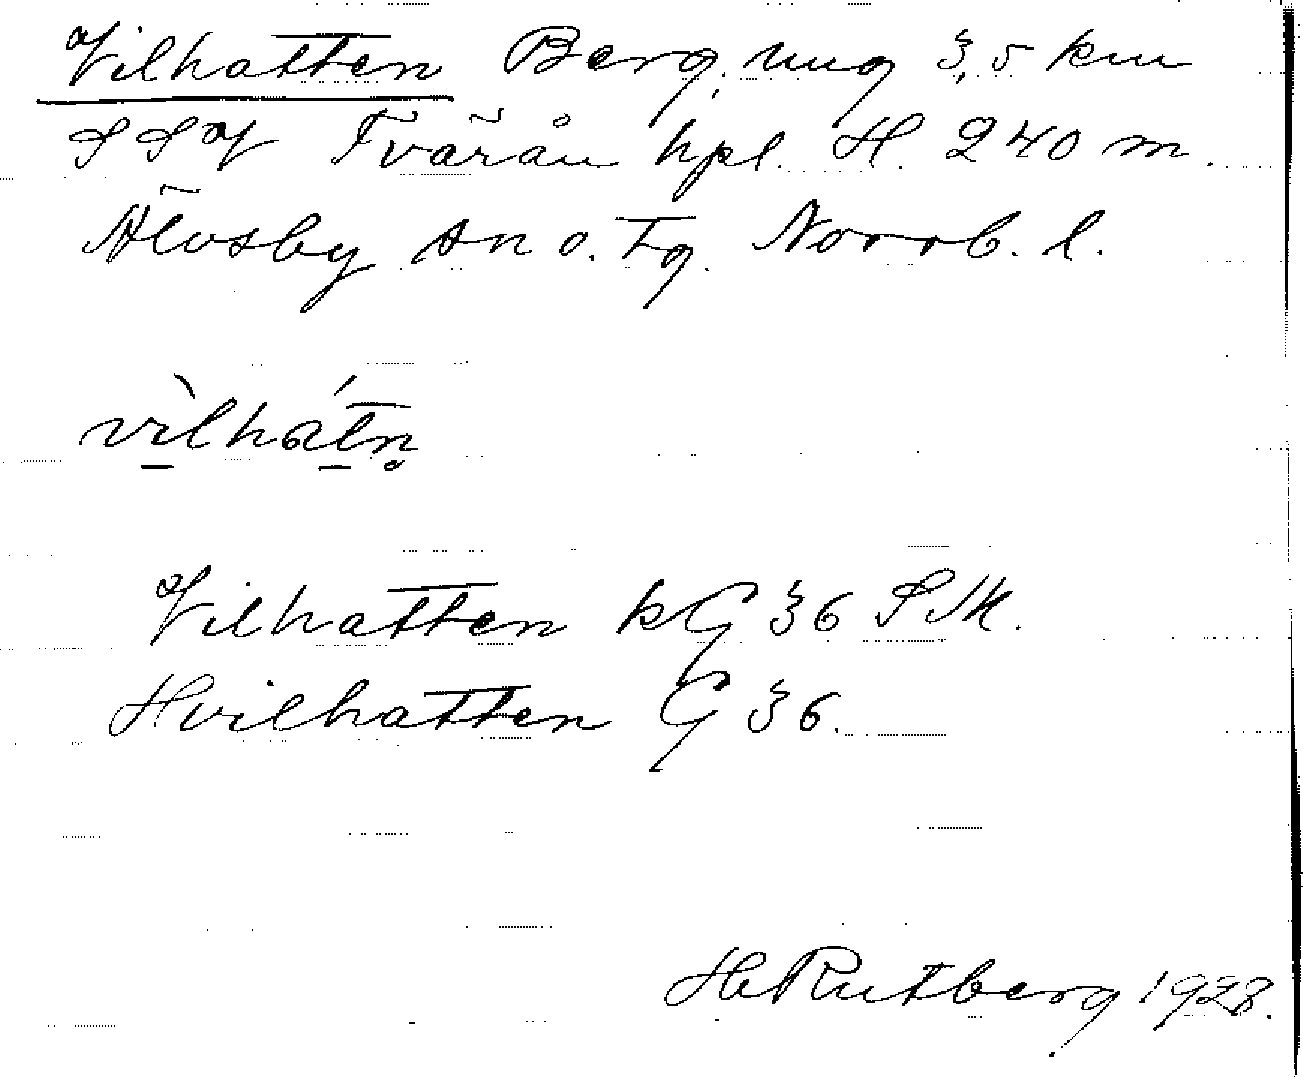 Vilhatten Berg, ung 3,5 km
SSV Tvärån hpl. H. 240 m.
Älvsby sn o. tg. Norrb. l.
vìlhátn̥
Vilhatten kG 36 SM.
Hvilhatten G 36.
H Rutberg 1928.